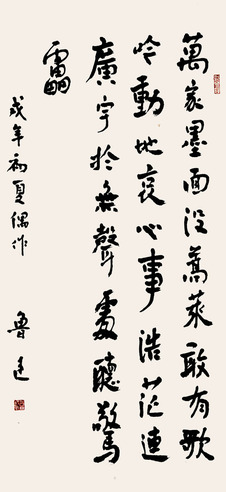 萬家墨面没蒿萊敢有歌
吟動地哀心事浩茫連
廣宇於無聲處聽驚
雷
戌年初夏偶作
魯迅